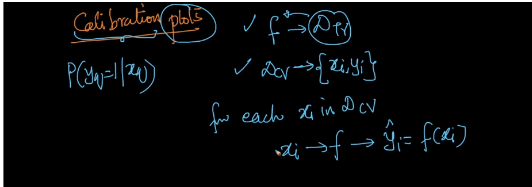 Calibration plots
P(y_q=1|x_q)
✓ f → D_Tr
✓ D_CV → {x_i, y_i}
for each x_i in D_CV
x_i → f → ŷ_i = f(x_i)